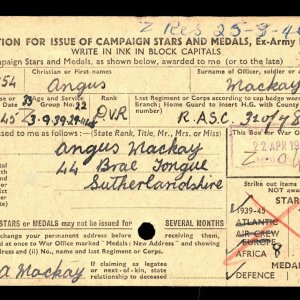 Z Res 25-3-4
TION FOR ISSUE OF CAMPAIGN STARS AND MEDALS, Ex-Army
WRITE IN INK IN BLOCK CAPITALS
paign Stars and Medals, as shown below, awarded to me (or to the late)
Christian or First names/
Surname of Officer, soldier or
54 Angus Mackay
Age and Service
Group No.
Last Regiment or Corps according to cap badge wor
Branch; Home Guard to insert H.G. with County
45 3-9-39 22 R.A.S.C. 310/78
issued to me as follows:— (State Rank, Title, Mr., Mrs. or Miss)
This Box for War O
Angus Mackay
44 Brae Tongue
Sutherlandshire
22 APR 19
Strike out items
NOT
STAR
1939-45
ATLANTIC
AIR CREW
EUROPE
AFRICA 8
MEDA
DEFENCE
STARS or MEDALS may not be issued for SEVERAL MONTHS
change your permanent address before receiving
them, write at once, quoting reference at (i) above
and (ii) No., name and last Regiment or Corps.
at once to War Office marked "Medals; New Address" and showing
A Mackay
If claiming as legatee
or next-of-kin, state
relationship to deceased